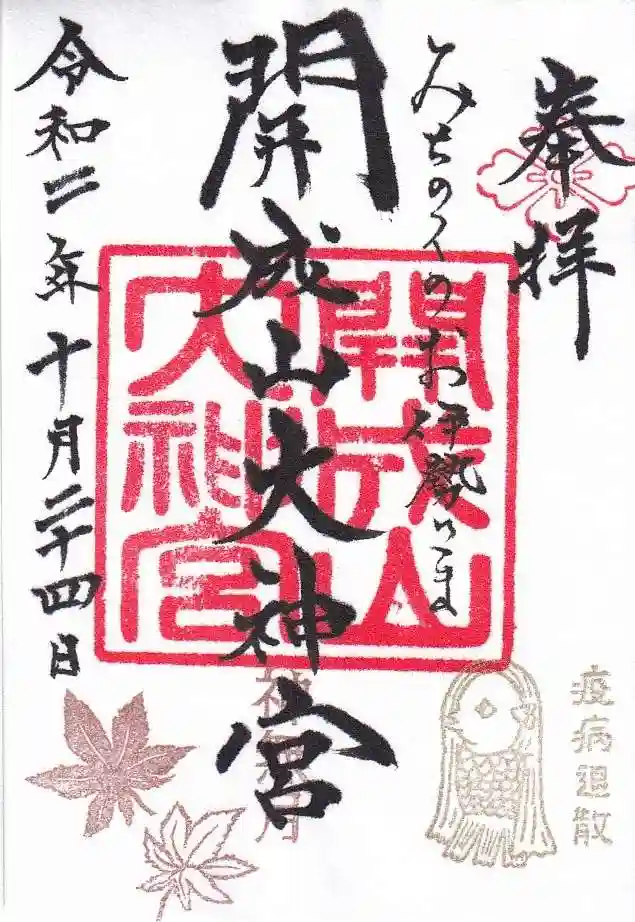 奉拝
みちのくのお伊勢さま
開成山大神宮
令和二年十月二十四日
開成山
大神宮
神無月
疫病退散